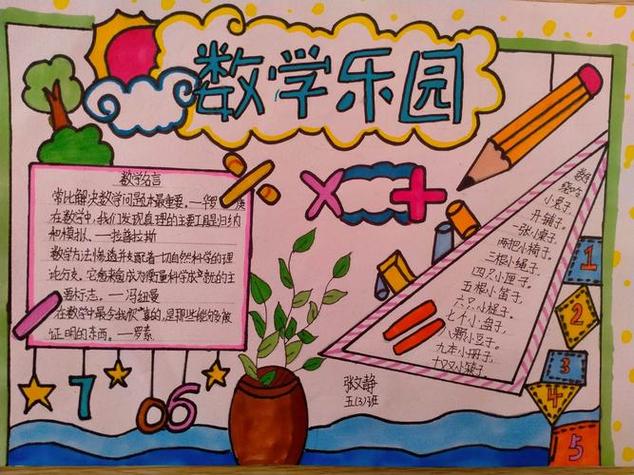 数学乐园
数学名言
常比解决数学问题本最重要。—华罗
在数学中,我们发现真理的主要工具是归纳
和模拟。—拉普拉斯
数学方法 选并支配着一切自然科学的理
论分支。它愈来愈成为衡量科学成就的主
要标志。—冯纽曼
在数学中最令我 的,是那些能够被
证明的东西。—罗素
7 0 6
张文静
五(3)班
数
小兔子,
开铺子。
一张小桌子,
两把小椅子。
三根小绳子,
四只小匣子。
五根小笛子,
六 小 子,
七个小盘子,
八颗小豆子。
九本小册子,
十双小筷子
1
2
3
4
5